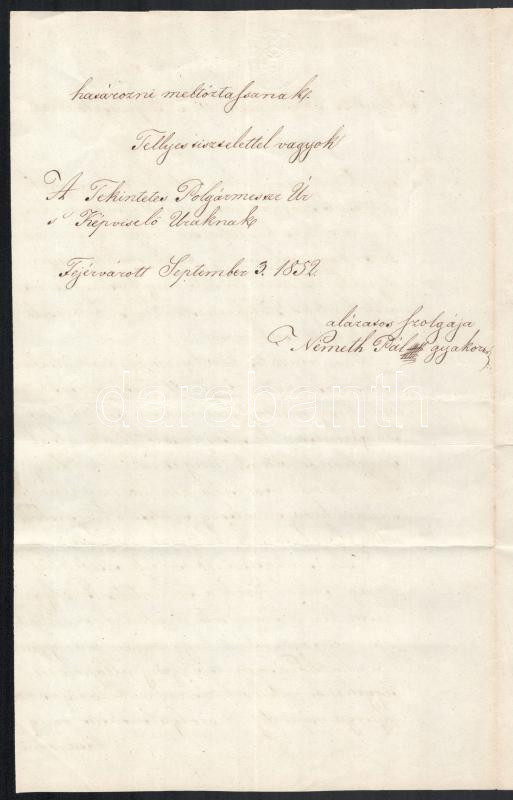 határozni méltóztassanak.
Tellyes tisztelettel vagyok
A Tekintetes Polgármester Úr
s Képviselő Uraknak
Fejérvárott September 3. 1852.
alázatos szolgája
Németh Pál gyakorn
darabanth